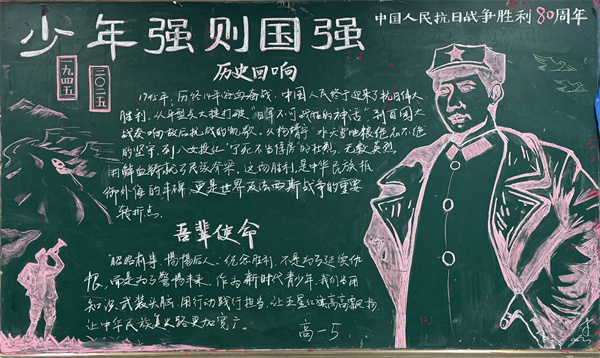 少年强则国强
中国人民抗日战争胜利80周年
一九四五
二〇二五
历史回响
1945年,历经14年浴血奋战,中国人民终于迎来了抗日伟大
胜利。从平型关大捷打破"日军不可战胜的神话"到百团大
战奏响敌后抗战的凯歌。从杨靖宇
的坚守,到八女投江"宁死不当俘虏"的壮烈,无数英烈
用鲜血铸就了民族脊梁。这场胜利,是中华民族抵
御外侮的丰碑,更是世界反法西斯战争的重要
转折点。
吾辈使命
"昭昭前事,惕惕后人。"纪念胜利,不是为了延续仇
恨,而是为了警惕未来。作为新时代青少年,我们当用
知识武装头脑,用行动践行担当,让五星红旗高高飘扬
让中华民族复兴之路更加宽广。
高一5